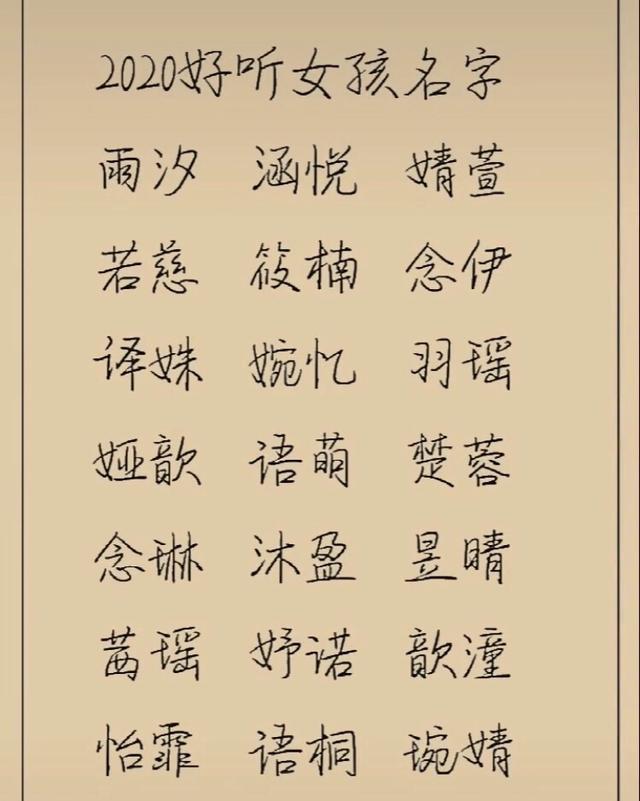 2020好听女孩名字
雨汐 涵悦 婧萱
若慈 筱楠 念伊
译姝 婉忆 羽瑶
娅歆 语萌 楚蓉
念琳 沐盈 昱晴
茜瑶 妤诺 歆潼
怡霏 语桐 琬婧